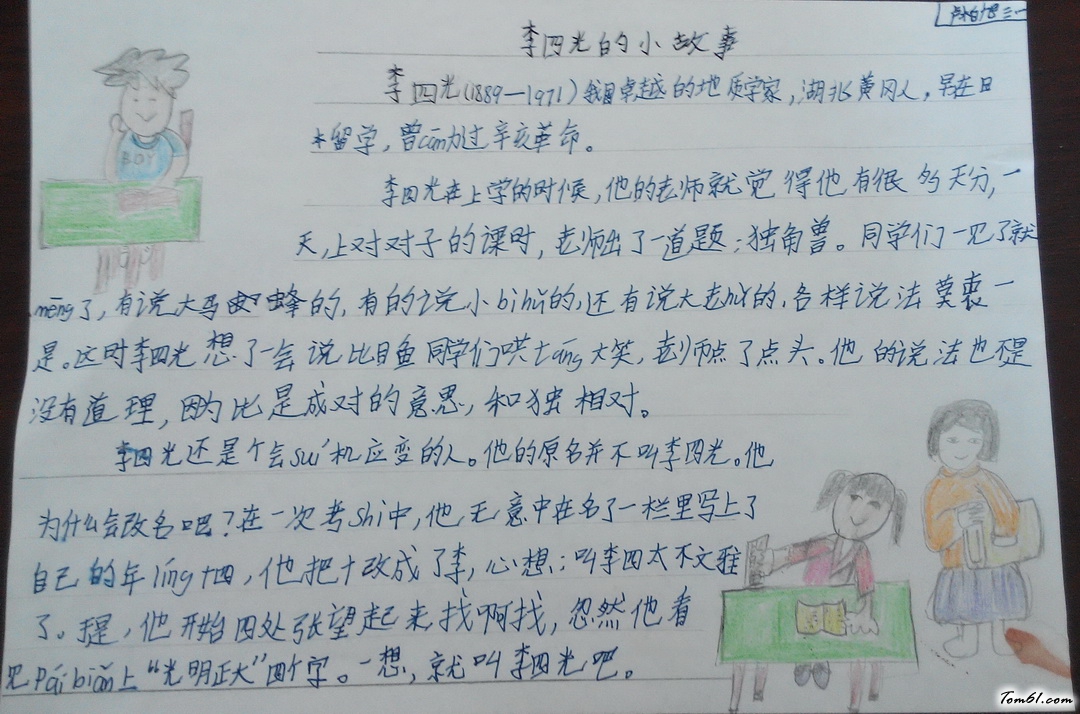 李四光的小故事
李四光(1889—1971)我国卓越的地质学家,湖北黄冈人,早在日
本留学,曾cān加过辛亥革命。
李四光在上学的时候,他的老师就觉得他有很多天分,一
天,上对对子的课时,老师出了一道题:独角兽。同学们一见了就
mēng了,有说大马蜂的,有的说小bìhǔ的,还有说大老hǔ的,各样说法莫衷一
是。这时李四光想了一会说比目鱼同学们哄táng大笑,老师点了点头。他的说法也不是
没有道理,因为比是成对的意思,和独相对。
李四光还是个会suí机应变的人。他的原名并不叫李四光。他
为什么会改名呢?在一次考shì中,他无意中在名了一栏里写上了
自己的年líng十四,他把十改成了李,心想:叫李四太不文雅
了。于是,他开始四处张望起来找啊找,忽然他看
见pái biǎn上“光明正大”四个字。一想,就叫李四光吧。
BOY
Tom61.com